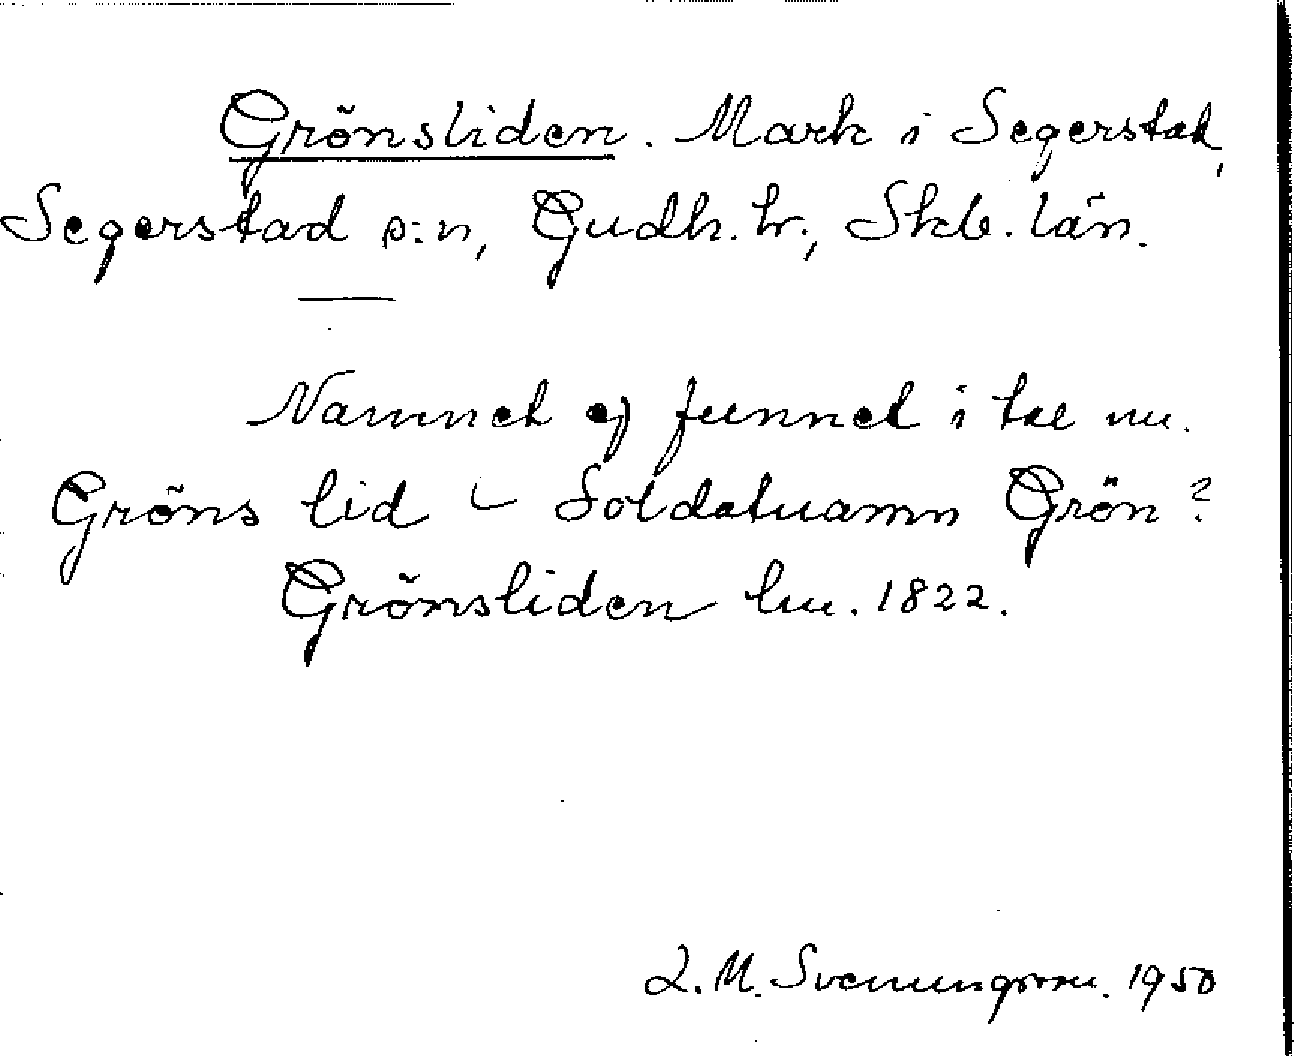 Grönsliden. Mark i Segerstad,
Segerstad s:n, Gudh. hr., Skb. län.
Namnet ej funnet i tal nu.
Gröns lid – Soldatnamn Grön?
Grönsliden hm. 1822.
L. M. Svenungsson. 1950